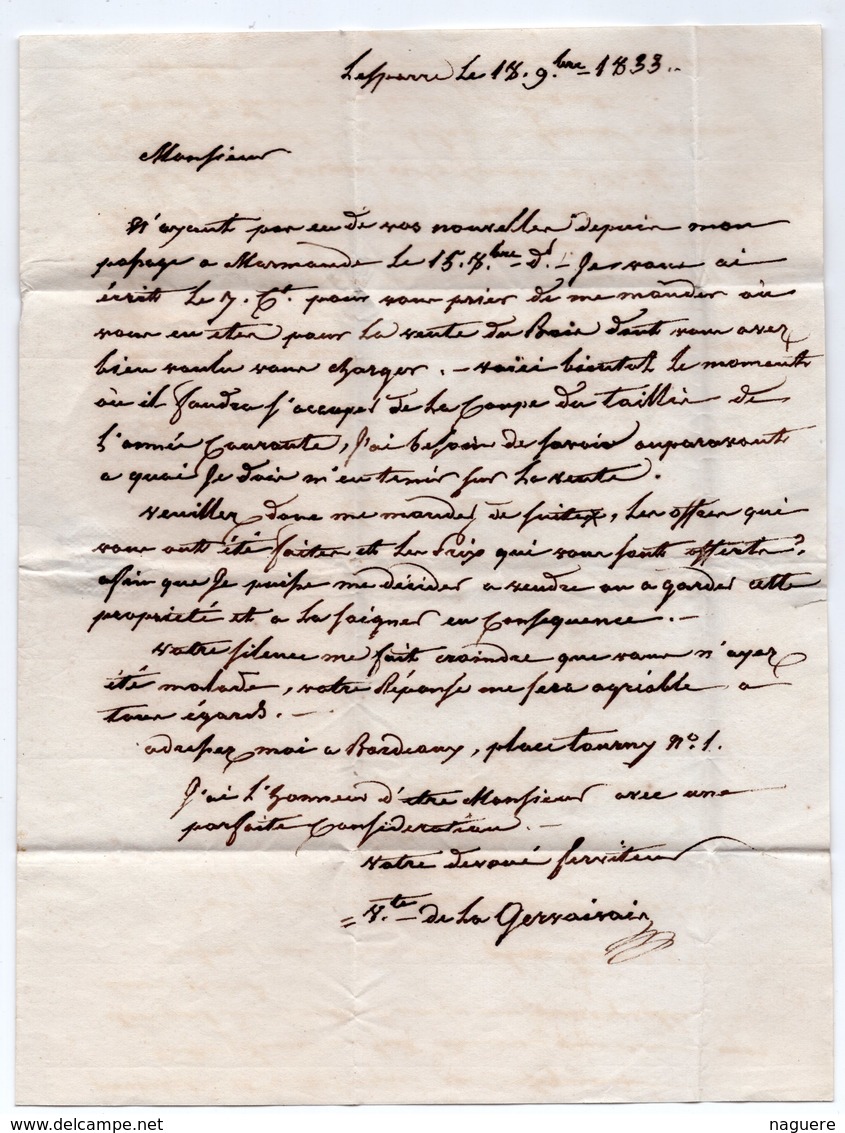 Lesparre le 18. 9.bre 1833..
Monsieur
N'ayant pas eu de vos nouvelles depuis mon
passage a Marmande le 15. 7.bre d.t – Je vous ai
écrit le 7. Ct. pour vous prier de me mander où
vous en etes pour la vente du Bois dont vous avez
bien voulu vous charger. – voici bientot le moment
où il faudra s'occuper de la Coupe du taillis de
l'année Courante, J'ai besoin de savoir auparavant
a quoi Je dois m'en tenir sur la vente.
Veuillez donc me mander de suite, les offres qui
vous ont été faites et les Prix qui vous sont offerts,
afin que Je puisse me décider a vendre ou a garder cette
propriété et a la soigner en Conséquence. –
Votre silence me fait craindre que vous n'ayez
été malade, votre Réponse me sera agréable a
tous égards. –
adressez moi a Bordeaux, place tourny N° 1.
J'ai l'honneur d'etre Monsieur avec une
parfaite Consideration. –
Votre devoué serviteur
= V.te – de La Gervaisais
naguere